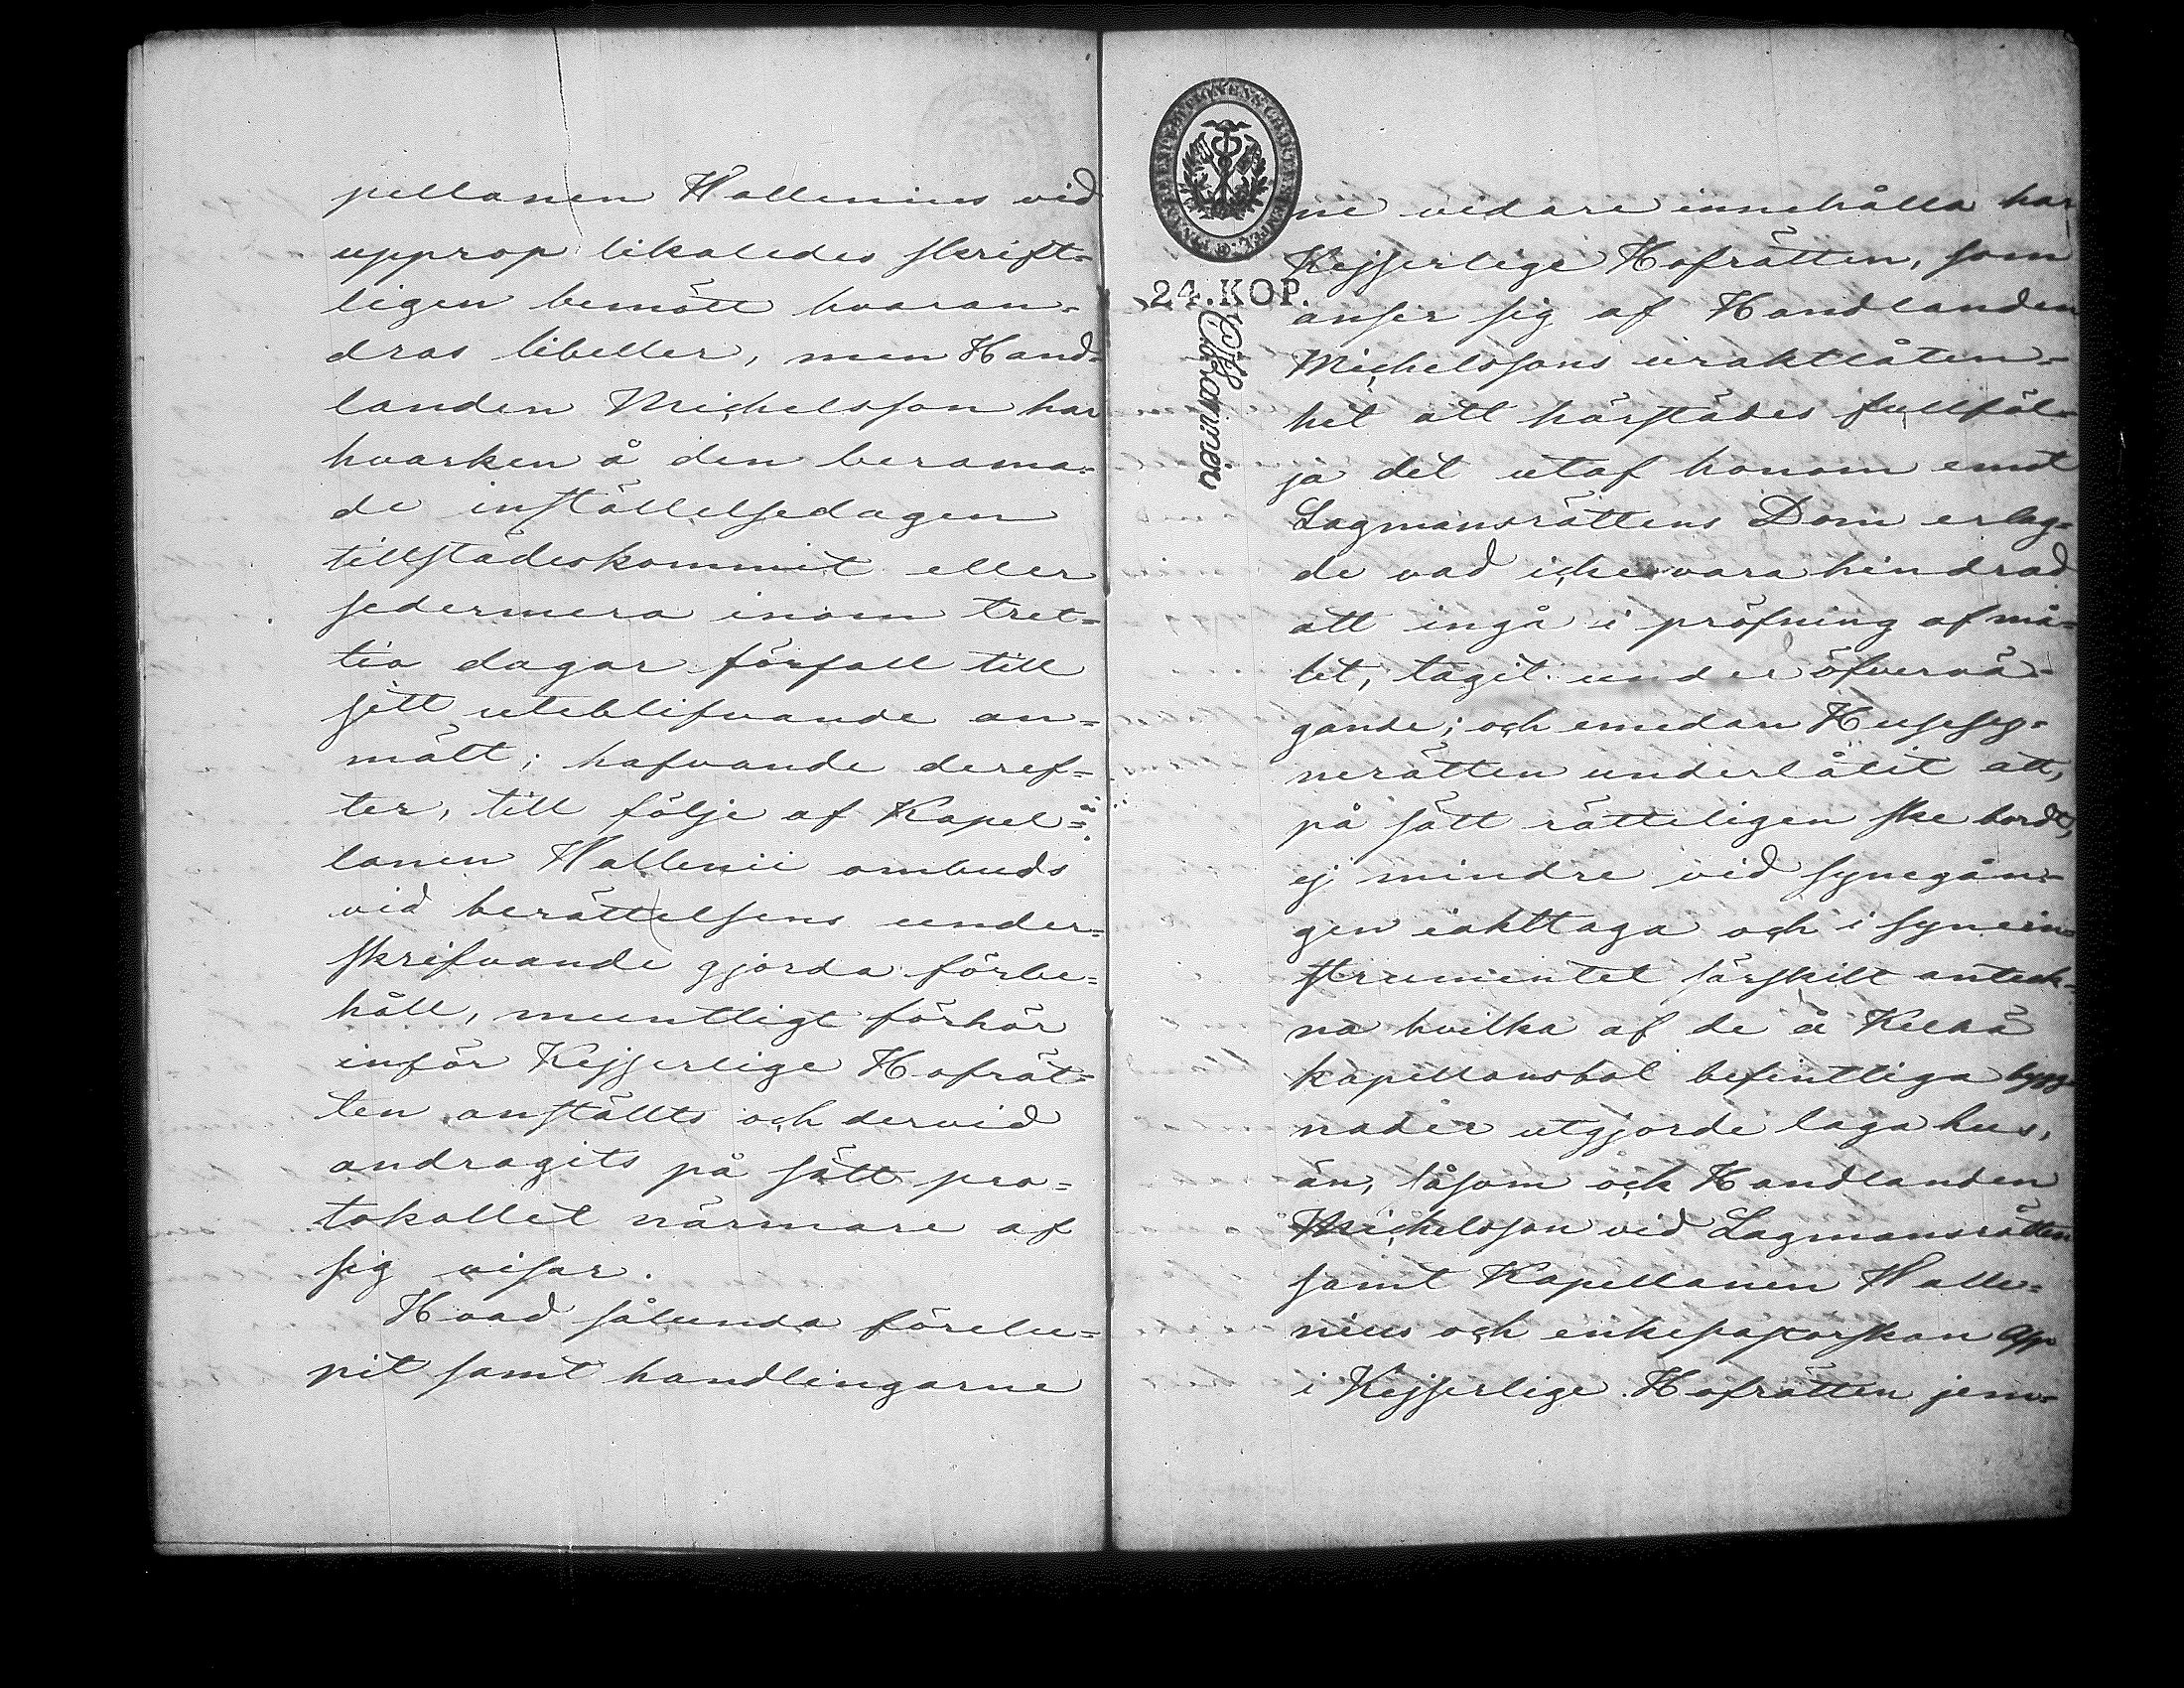 pellanen Wallenius vid
upprop likaledes skrift-
ligen bemött hvaran-
dras libeller, men Hand-
landen Michelsson har
hvarken å den berama-
de inställelsedagen
tillstädeskommit eller
sedermera inom tret-
tio dagar förfall till
sitt uteblifvande an-
mält; hafvande deref-
ter, till följe af Kapel-
lanen Wallenii ombuds
vid berättelsens under-
skrifvande gjorda förbe-
håll, muntligt förhör
inför Kejserlige Hofrät-
ten anställts och dervid
andragits på sätt pro-
tokollet närmare af
sig visar.
Hvad sålunda förelu-
pit samt handlingarne
24.KOP.
ne vidare innehålla har
Kejserlige Hofrätten, som
anser sig af Handlanden
Michelssons uraktlåten-
het att härstädes fullföl-
ja det utaf honom emot
Lagmansrättens Dom erlag-
de vad icke vara hindrad
att ingå i pröfning af må-
let, tagit under öfvervä-
gande; och emedan Husesy-
nerätten underlåtit att,
på sätt rätteligen ske bordt,
ej mindre vid synegån-
gen iakttaga och i synein-
strumentet särskilt anteck-
na hvilka af de å Kuhä
kapellansbol befintliga bygg-
nader utgjorde laga hus,
än, såsom ock Handlanden
Michelsson vid Lagmansrätten
samt Kapellanen Walle-
nius och enkepastorskan App
i Kejserlige Hofrätten jem-